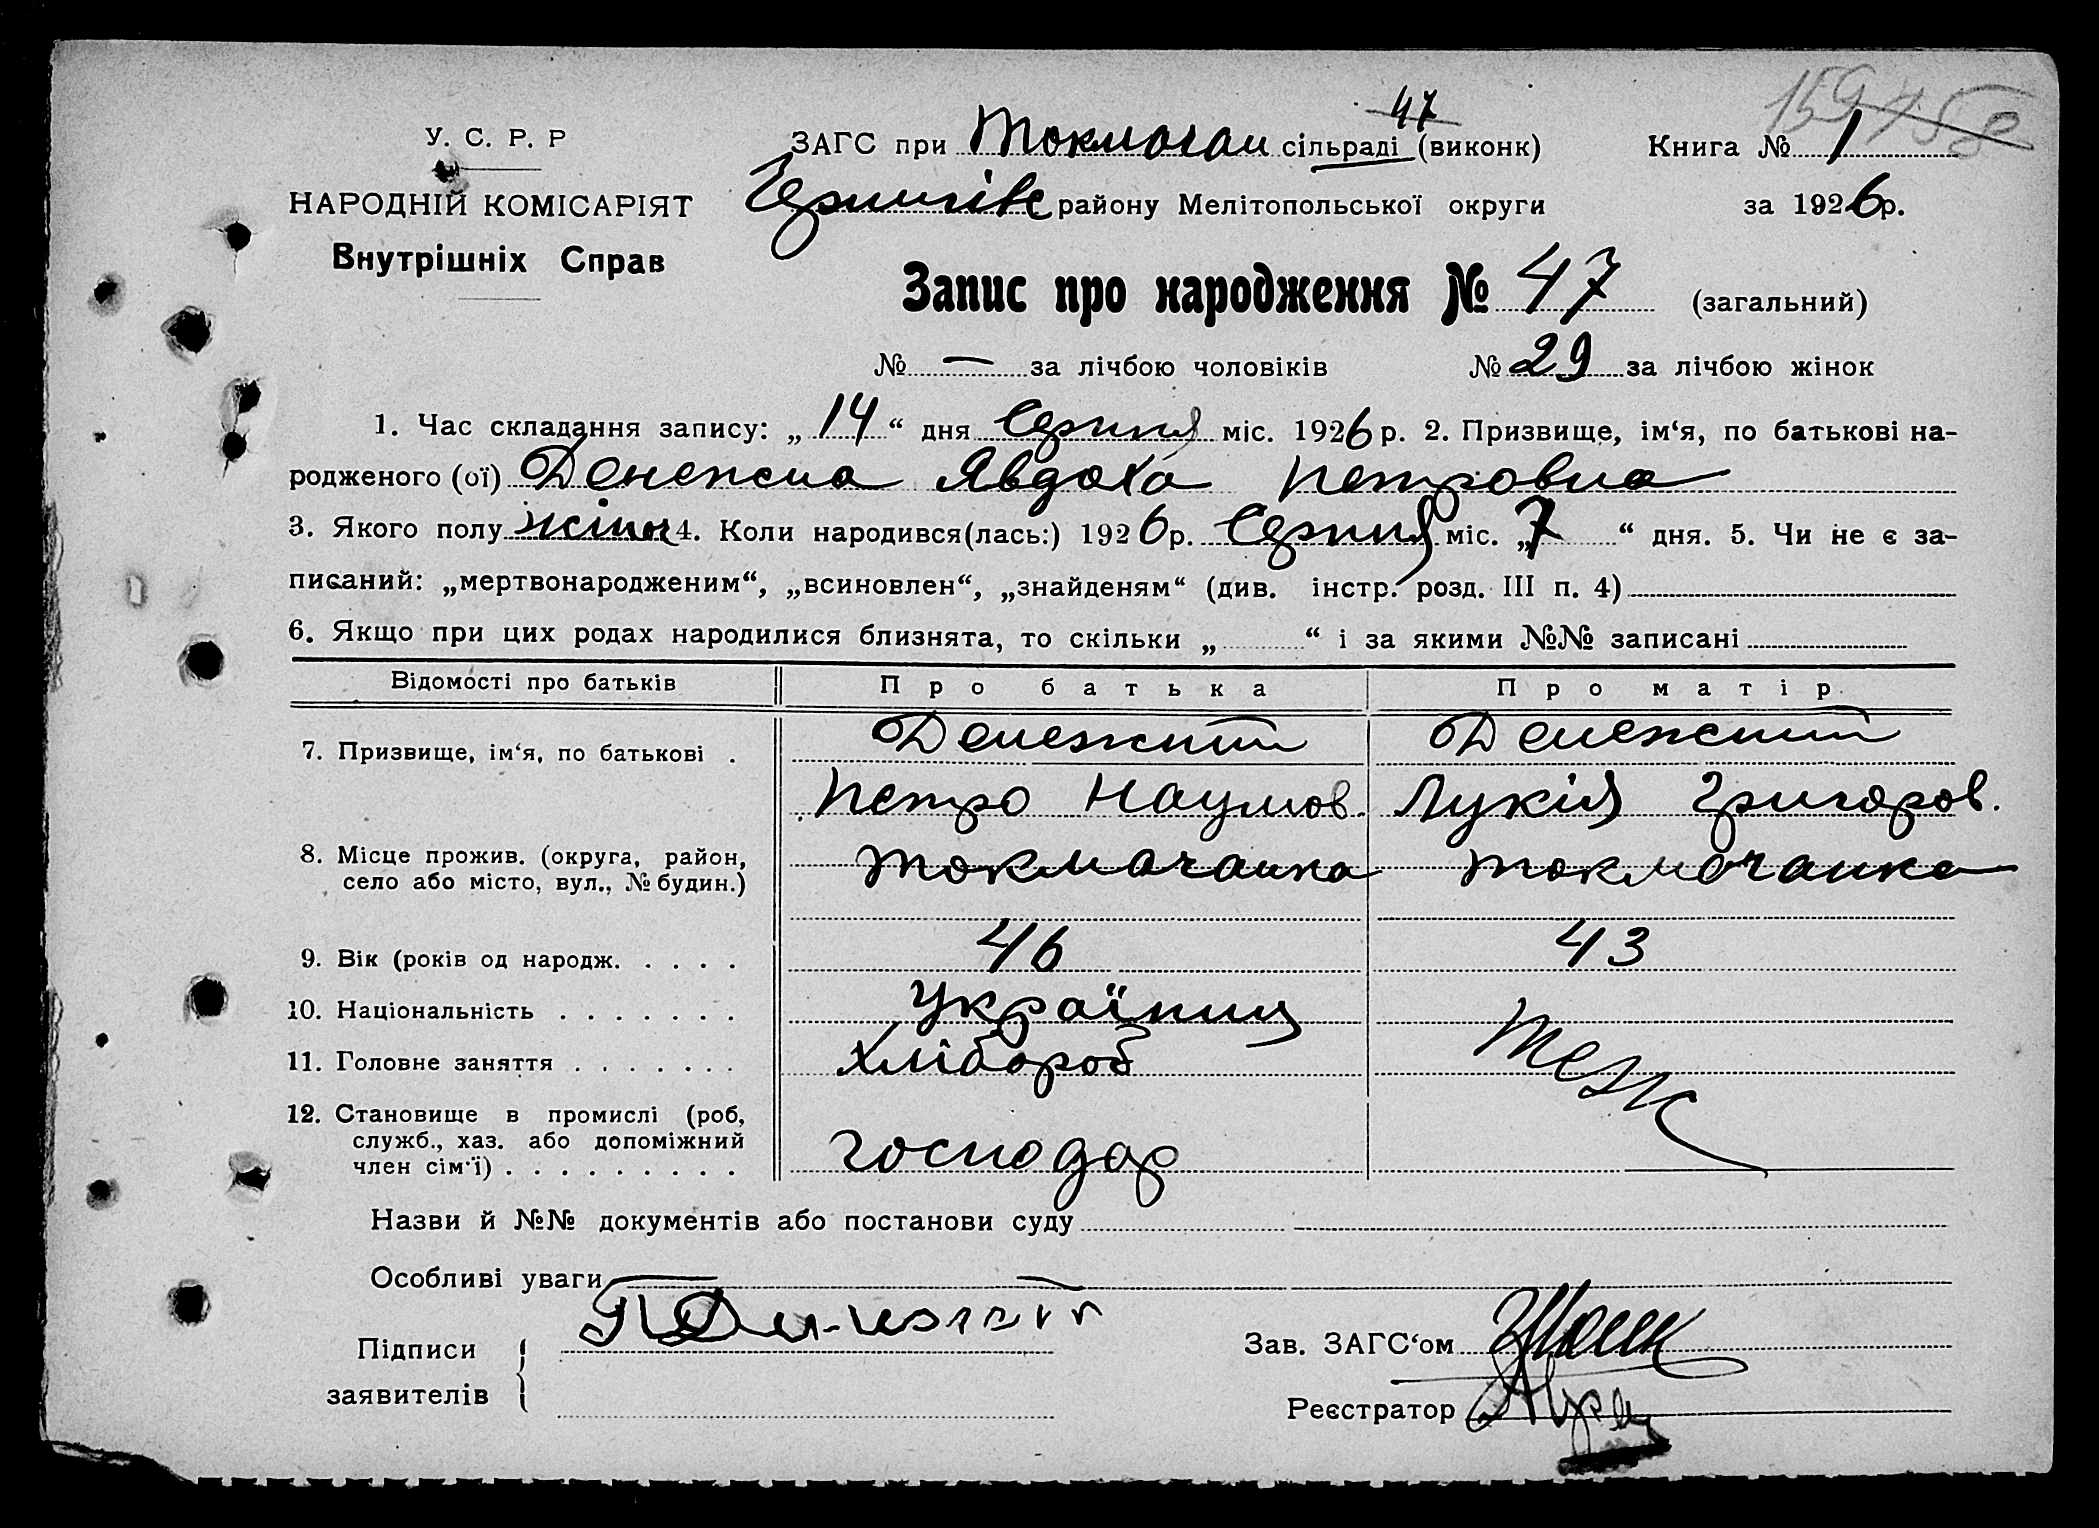 47
159 458
У. С. Р. Р
ЗАГС при Токмачан сільраді (виконк)
Книга № 1
НАРОДНІЙ КОМІСАРІЯТ
району Мелітопольської округи
за 1926р.
Внутрішніх Справ
Запис про народження № 47 (загальний)
№ — за лічбою чоловіків № 29 за лічбою жінок
1. Час складання запису: „14“ дня Серпня міс. 1926р. 2. Призвище, ім‘я, по батькові на-
родженого (ої) Денежна Явдоха Петровна
3. Якого полу жіноч 4. Коли народився(лась:) 1926р. Серпня міс. „7“ дня. 5. Чи не є за-
писаний: „мертвонародженим“, „всиновлен“, „знайденям“ (див. інстр. розд. III п. 4)
6. Якщо при цих родах народилися близнята, то скільки „ “ і за якими №№ записані
Відомості про батьків Про батька Про матір
Денежний Денежний
7. Призвище, ім‘я, по батькові .
Петро Наумов. Лукія Григоров.
8. Місце прожив. (округа, район, Токмачанка Токмачанка
село або місто, вул., № будин.)
9. Вік (років од народж. . . . . 46 43
10. Національність . . . . . . . Українці
11. Головне заняття . . . . . . . Хлібороб теж
12. Становище в промислі (роб,
служб., хаз. або допоміжний господар
член сім‘ї) . . . . . . . . .
Назви й №№ документів або постанови суду
Особливі уваги
Підписи
заявителів
Зав. ЗАГС‘ом
Реєстратор